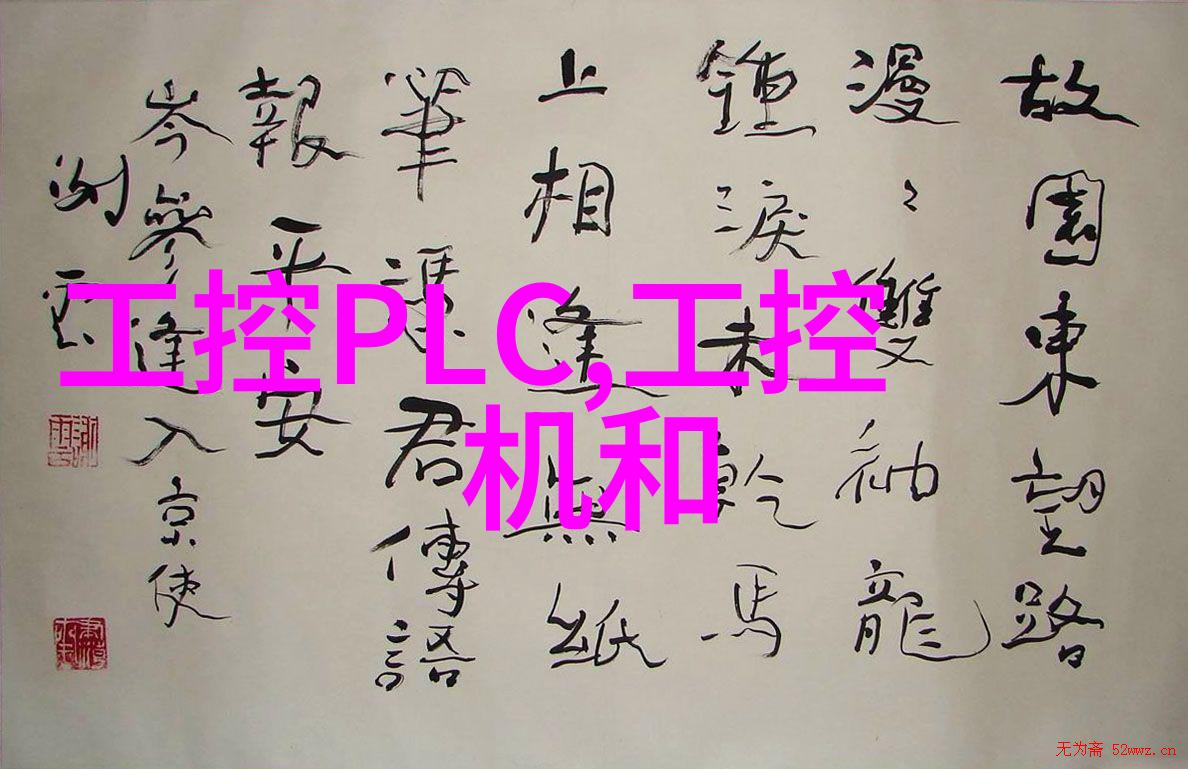 故園東望路
漫〻雙袖龍
鍾淚未乾馬
上相逢無紙
筆憑君傳語
報平安
岑參逢入京使
工控PLC,工控
机和
无为斋 52wwz.cn